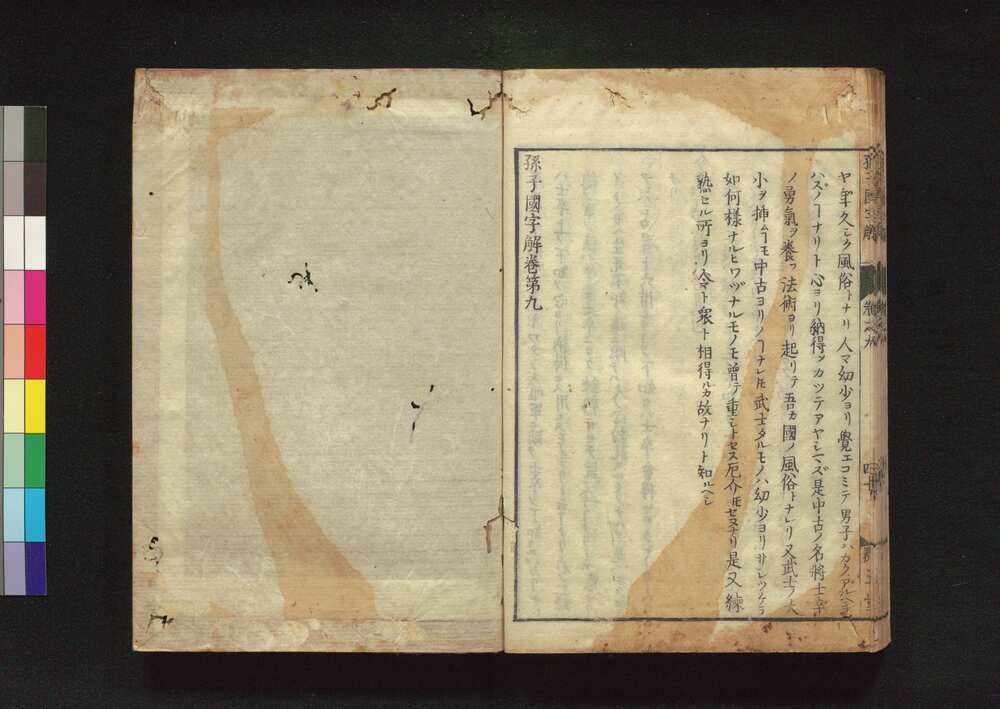 ヤ年久シク風俗トナリ人マ幼少ヨリ覺エコミテ男子ハカクアルヘキ
ハズノヿナリト心ヨリ納得シカツテアヤシマズ是中古ノ名將士卒
ノ勇氣ヲ養フ法術ヨリ起リテ吾カ國ノ風俗トナレリ又武士ノ大
小ヲ挿ムヿモ中古ヨリノヿナレ𪜈武士タルモノハ幼少ヨリサシツケテ
如何樣ナルヒワヅナルモノモ曾テ重シトセス厄介𪜈セヌナリ是又練
熟セル所ヨリ人マト衆ト相得ルカ故ナリト知ルヘシ
孫子國字解卷第九